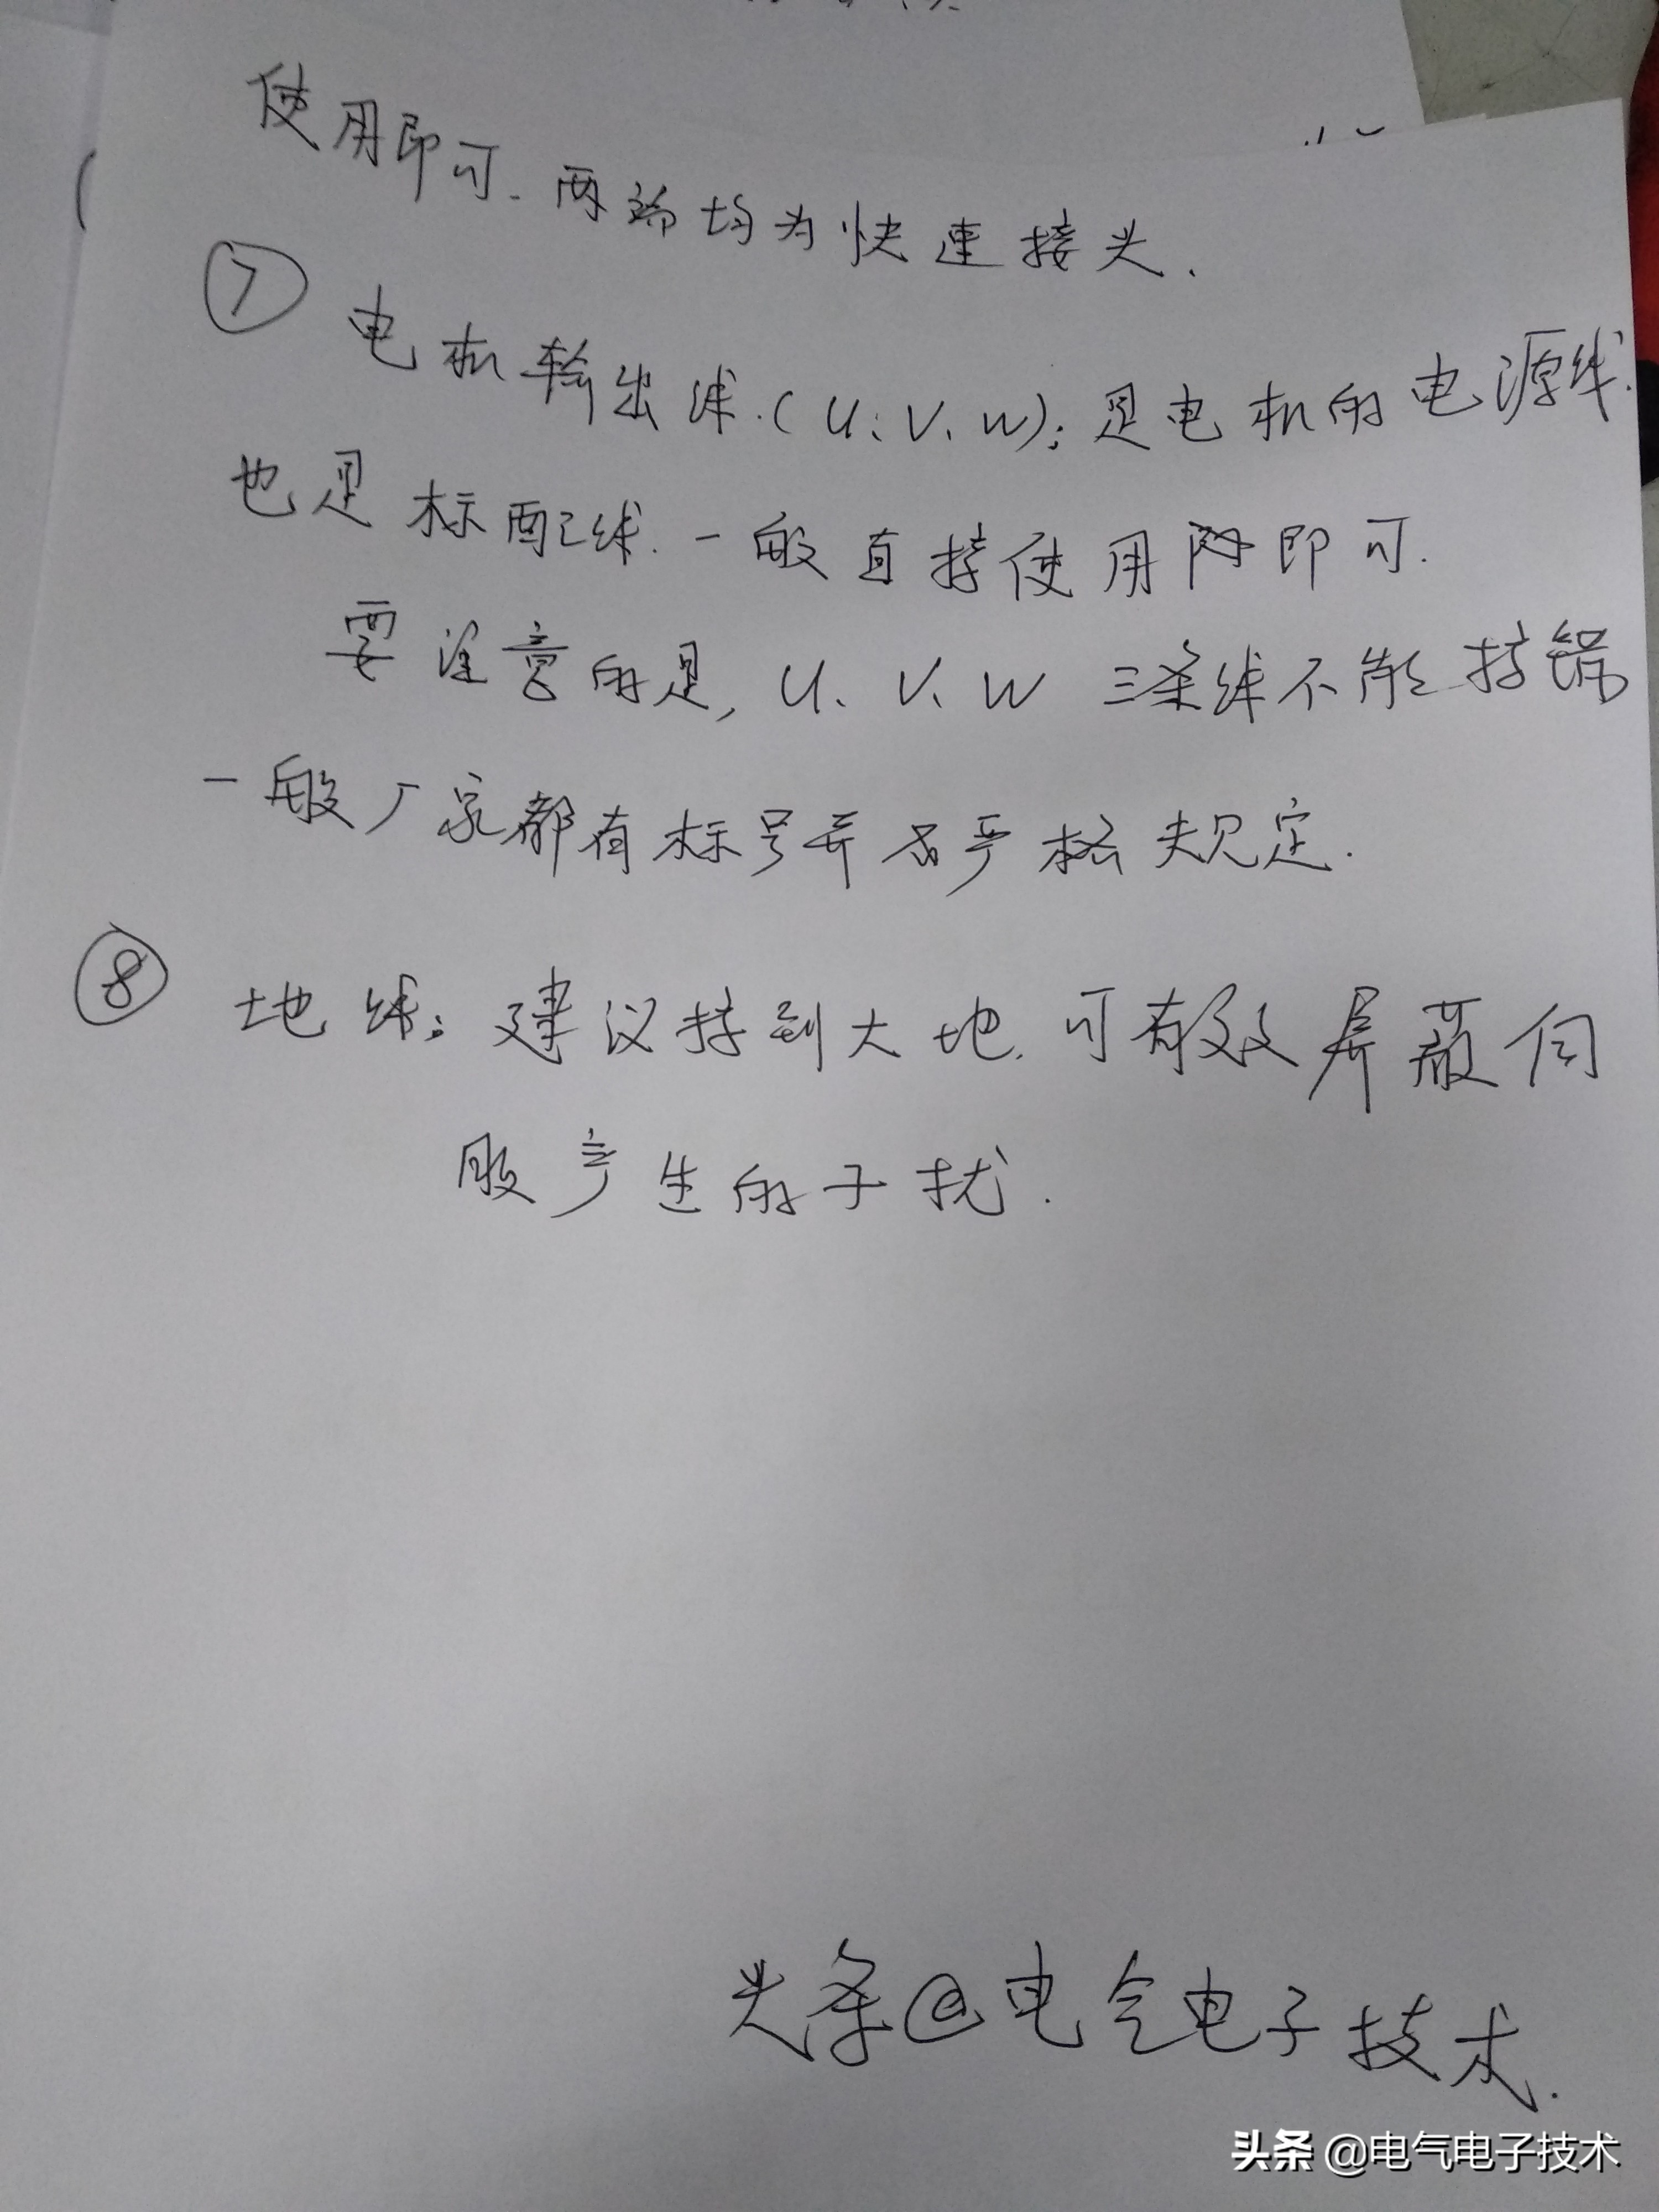 使用即可.两端均为快速接头.
⑦ 电机输出线.(U、V、W):是电机的电源线.
也是标配线.一般直接使用即可.
要注意的是,U、V、W三条线不能接错
一般厂家都有标号并有严格规定.
⑧ 地线:建议接到大地.可有效屏蔽伺
服产生的干扰.
头条@电气电子技术.
头条 @电气电子技术